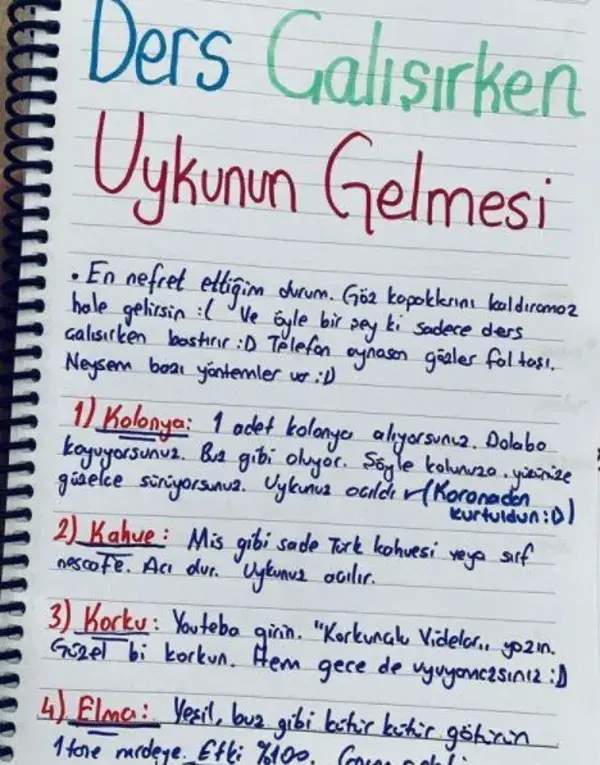 Ders Çalışırken
Uykunun Gelmesi
• En nefret ettiğim durum. Göz kapaklarını kaldıramaz
hale gelirsin :( Ve öyle bir şey ki sadece ders
çalışırken bastırır :D Telefon oynasan gözler faltaşı.
Neysem bazı yöntemler var :D
1) Kolonya: 1 adet kolonya alıyorsunuz. Dolaba
koyuyorsunuz. Buz gibi oluyor. Şöyle kolunuza, yüzünüze
güzelce sürüyorsunuz. Uykunuz açıldı ✓ (Koronadan
kurtuldun :D)
2) Kahve: Mis gibi sade Türk kahvesi veya sırf
nescafe. Acı dur. Uykunuz açılır.
3) Korku: Youteba girin. "Korkunçlu Videolar,, yazın.
Güzel bi korkun. Hem gece de uyuyamazsınız :D
4) Elma: Yeşil, buz gibi kütür kütür götürün
1 tane mideye. Etki %100.